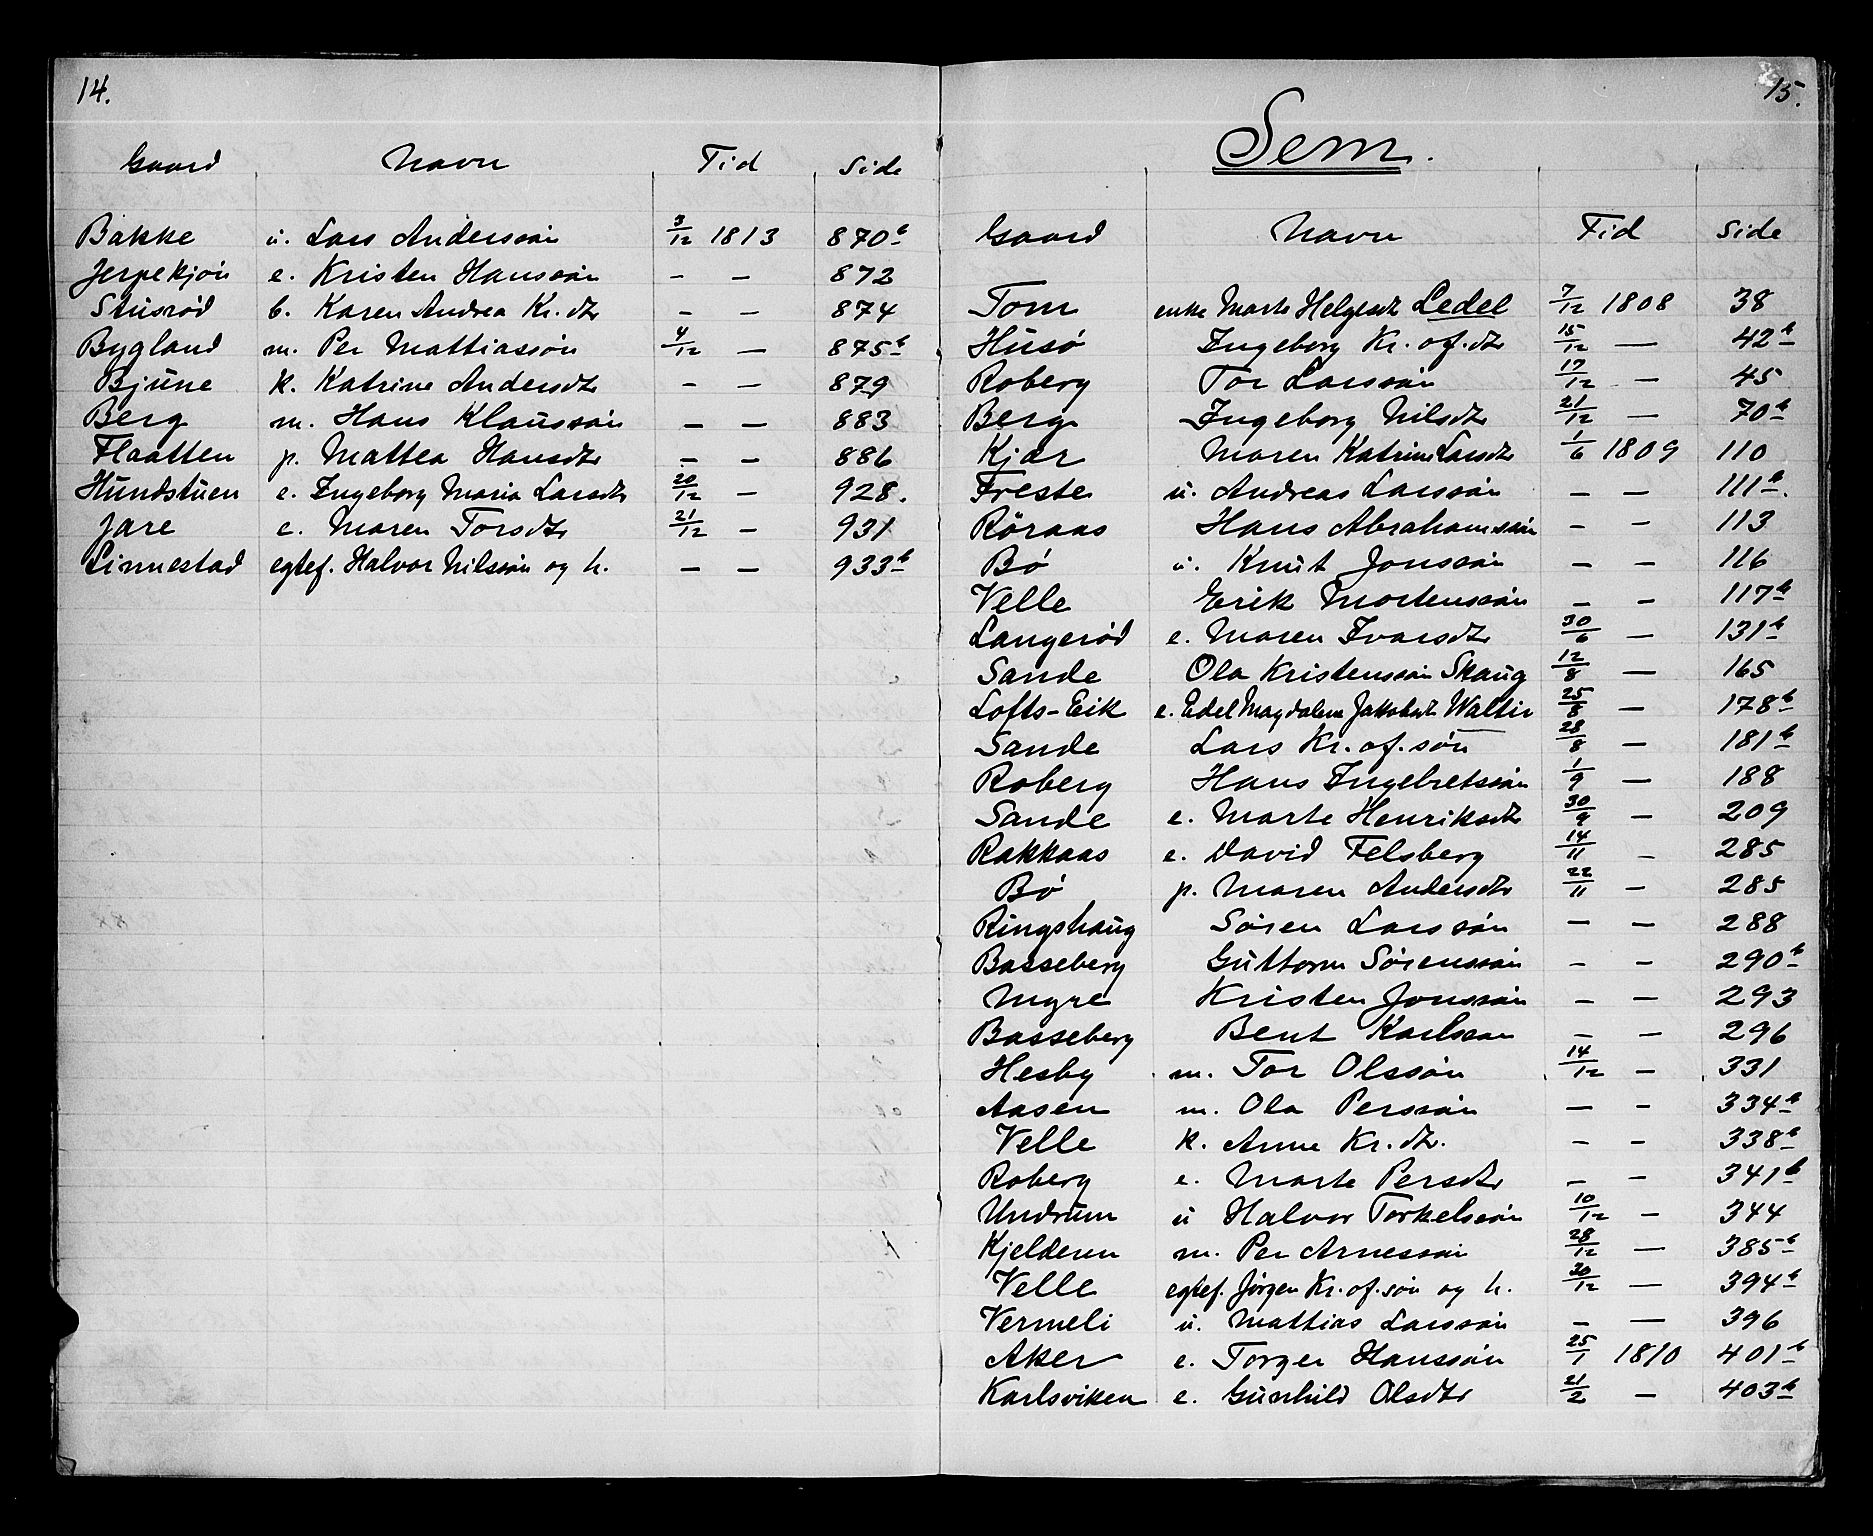 14.
Gaard Navn Tid Side
Bakke u. Lars Anderssøn 3/12 1813 870b
Jerpekjøn e. Kristen Hanssøn – – 872
Stusrød b. Karen Andrea Kr.dtr – – 874
Bygland m. Per Mattiassøn 4/12 – 875b
Bjune k. Katrine Andersdtr – – 879
Berg m. Hans Klaussøn – – 883
Flaatten p. Mattea Hansdtr – – 886
Hundstuen e. Ingeborg Maria Larsdtr 20/12 – 928.
Jare e. Maren Torsdtr 21/12 – 931
Linnestad egtef. Halvor Nilssøn og h. – – 933b
15.
Sem.
Gaard Navn Tid Side
Tom enke Marte Helgesdtr Ledel 7/12 1808 38
Husø Ingeborg Kr.of.dtr 15/12 – 42b
Roberg Tor Larssøn 17/12 – 45
Berg Ingeborg Nilsdtr 21/12 – 70b
Kjær Maren Katrine Larsdtr 1/6 1809 110
Freste u. Andreas Larssøn – – 111b.
Röraas Hans Abrahamssøn – – 113
Bø u. Knut Jonssøn – – 116
Velle Erik Mortenssøn – – 117b
Langerød e. Maren Ivarsdtr 30/6 – 131b
Sande Ola Kristenssøn Skaug 12/8 – 165
Lofts-Eik e. Edel Magdalene Jakobsdtr Waltir 25/8 – 178b
Sande Lars Kr.of.søn 28/8 – 181b
Roberg Hans Ingebretssøn 1/9 – 188
Sande e. Marte Henriksdtr 30/9 – 209
Rakkaas e. David Felsberg 14/11 – 285
Bø p. Maren Andersdtr 22/11 – 285
Ringshaug Søren Larssøn – – 288
Basseberg Guttorm Sørenssøn – – 290b
Myre Kristen Jonssøn – – 293
Basseberg Bent Karlssøn – – 296
Hesby m. Tor Olssøn 14/12 – 331
Aasen m. Ola Perssøn – – 334b
Velle k. Anne Kr.dtr. – – 338b
Roberg e. Marte Persdtr – – 341b
Undrum u Halvor Torkelssøn 10/12 – 344
Kjelderen m. Per Arnessøn 28/12 – 385b
Velle egtef. Jørgen Kr.of.søn og h. 30/12 – 394b
Vermeli u. Mattias Larssøn – – 396
Aker e. Torger Hanssøn 25/1 1810 401b
Karlsviken e. Gunhild Olsdtr 21/2 – 403b